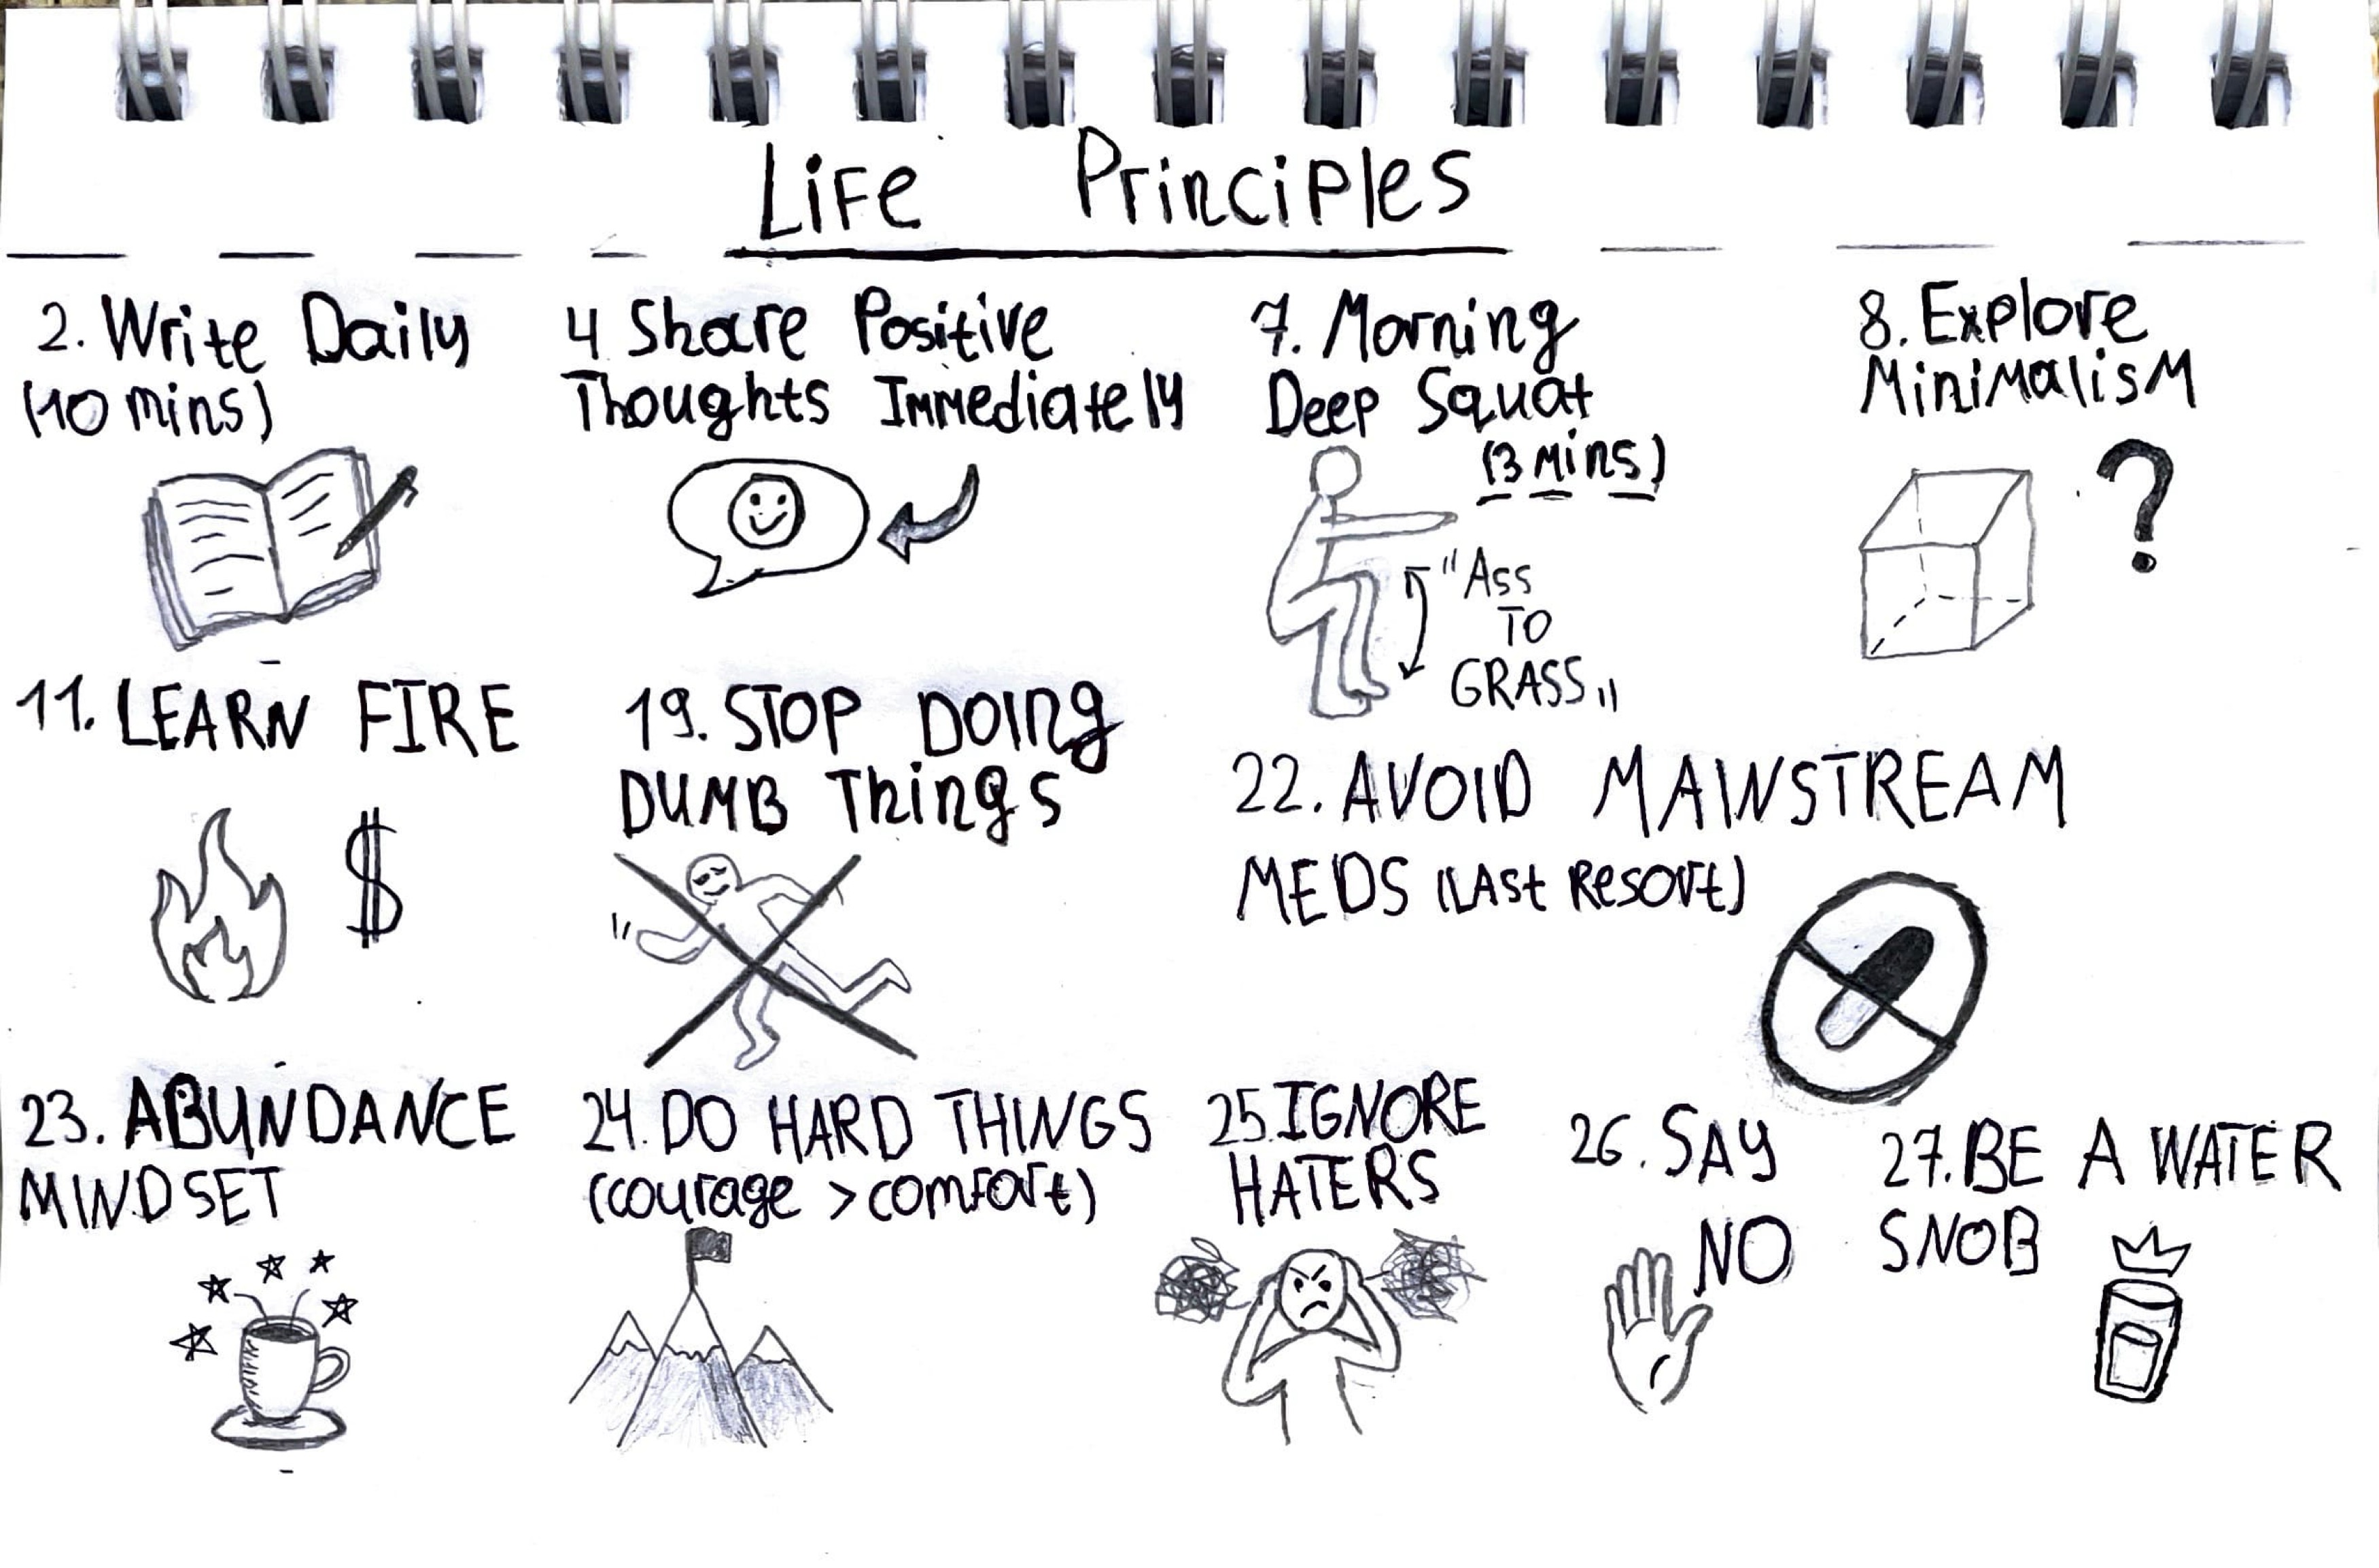 Life Principles
2. Write Daily
(10 mins)
4 Share Positive
Thoughts Immediately
7. Morning
Deep Squat
(3 mins)
"Ass
TO
GRASS"
8. Explore
Minimalism
11. LEARN FIRE
$
19. STOP DOING
DUMB Things
22. AVOID MAINSTREAM
MEDS (LAst Resort)
23. ABUNDANCE
MINDSET
24. DO HARD THINGS
(courage > comfort)
25 IGNORE
HATERS
26. SAY
NO
27. BE A WATER
SNOB
?